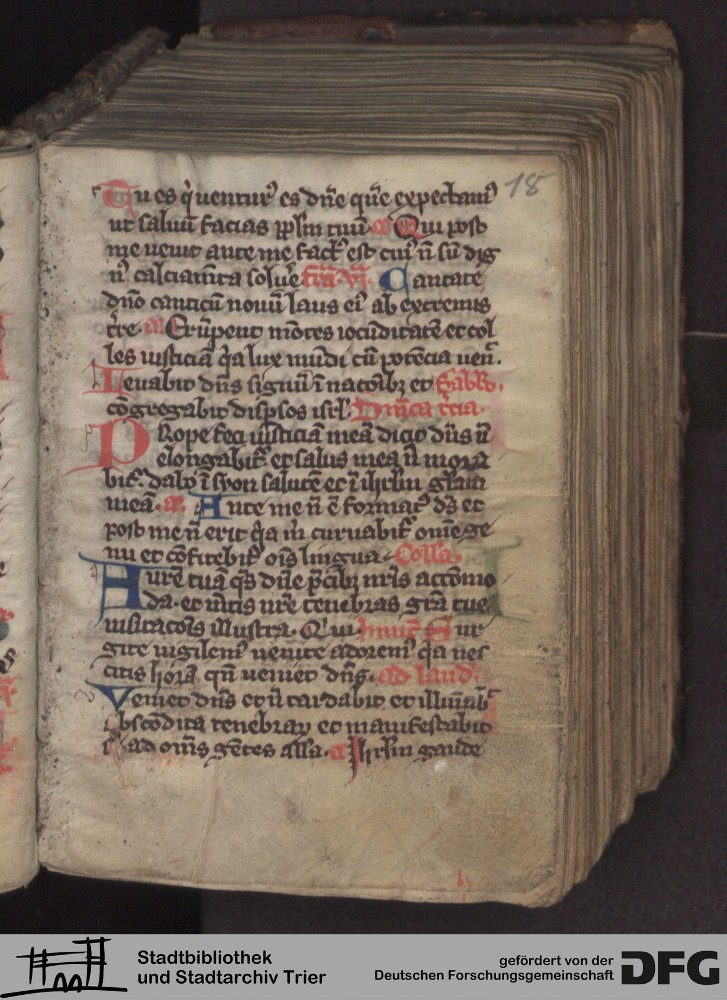 Tu es q̇ uenturꝰ es dn̄e quē expectamꝰ
18
ut saluū facias pplm tuū a Qui post
me uenit ante me factꝰ est cuiꝰ n̄ sū dig
nꝰ calciam̄ta soluere fr̄ia vj. Cantate
dn̄o canticū nouū laus eiꝰ ab extremis
t̄re a Erūpent mōtes iocūditatē et col
les iusticiā q̇a lux mūdi cū potēcia uen̄.
Leuabit dn̄s signū ī nacōibȝ et Sabb̄o.
cōgregabit disp̄sos isrl̄ Dn̄ica t̄cia.
Prope feci iusticiā meā dicit dn̄s n̄
elongabit᷑ et salus mea n̄ mora
bit᷑. dabo ī syon salutē et ī ihrlm̄ gl̄am
meā. a. Ante me n̄ ē formatꝰ ds̄ et
post me n̄ erit q̇a m̄ curuabit᷑ om̄e ge
nu et cōfitebit᷑ ois̄ lingua. Coll̄a.
Aurē tuā qs̄ dn̄e p̄cibȝ nr̄is accōmo
da. et mētis nr̄e tenebras gr̄a tue
uisitacōis illustra. Qui Inuit̄ Sur
gite uigilemꝰ uenite adoremꝰ q̇a nes
citis horā qn̄ ueniet dn̄s. ad laud̄.
Veniet dn̄s et n̄ tardabit et illumīab᷑
abscōdita tenebraꝝ et manifestabit
se ad om̄s gētes all̄a. a Ihrlm̄ gaude
Stadtbibliothek
und Stadtarchiv Trier
gefördert von der
Deutschen Forschungsgemeinschaft
DFG